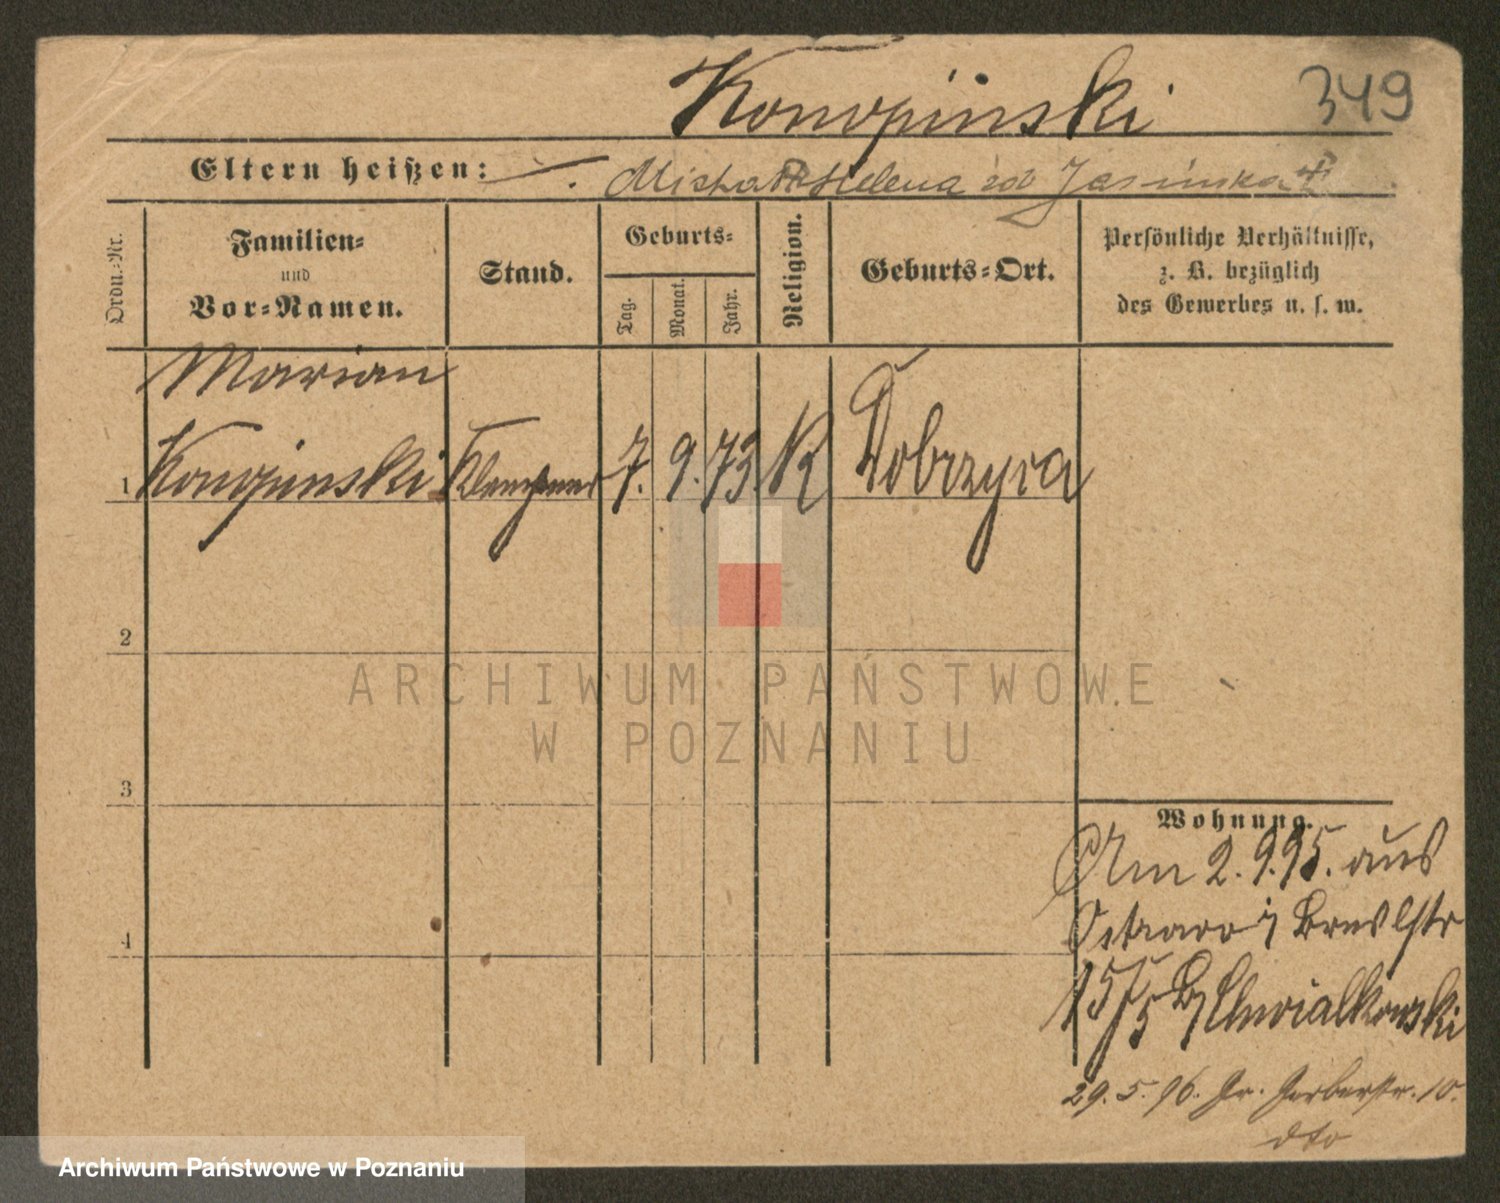 349
Konopinski
Eltern heißen: Micha Helena
Ordn.-Nr.
Familien-
und
Vor-Namen.
Stand.
Geburts-
Tag.
Monat.
Jahr.
Religion.
Geburts-Ort.
Persönliche Verhältnisse,
z. B. bezüglich
des Gewerbes u. s. w.
Marian
1 Konopinski Klempner 7. 9. 73. K Dobrzyca
2
3
4
ARCHIWUM PAŃSTWOWE
W POZNANIU
Wohnung.
Am 2.9.95. aus
Ostrowo
15/5 Chwialkowski
29.5.96. Gr. Gerberstr. 10.
dto
Archiwum Państwowe w Poznaniu